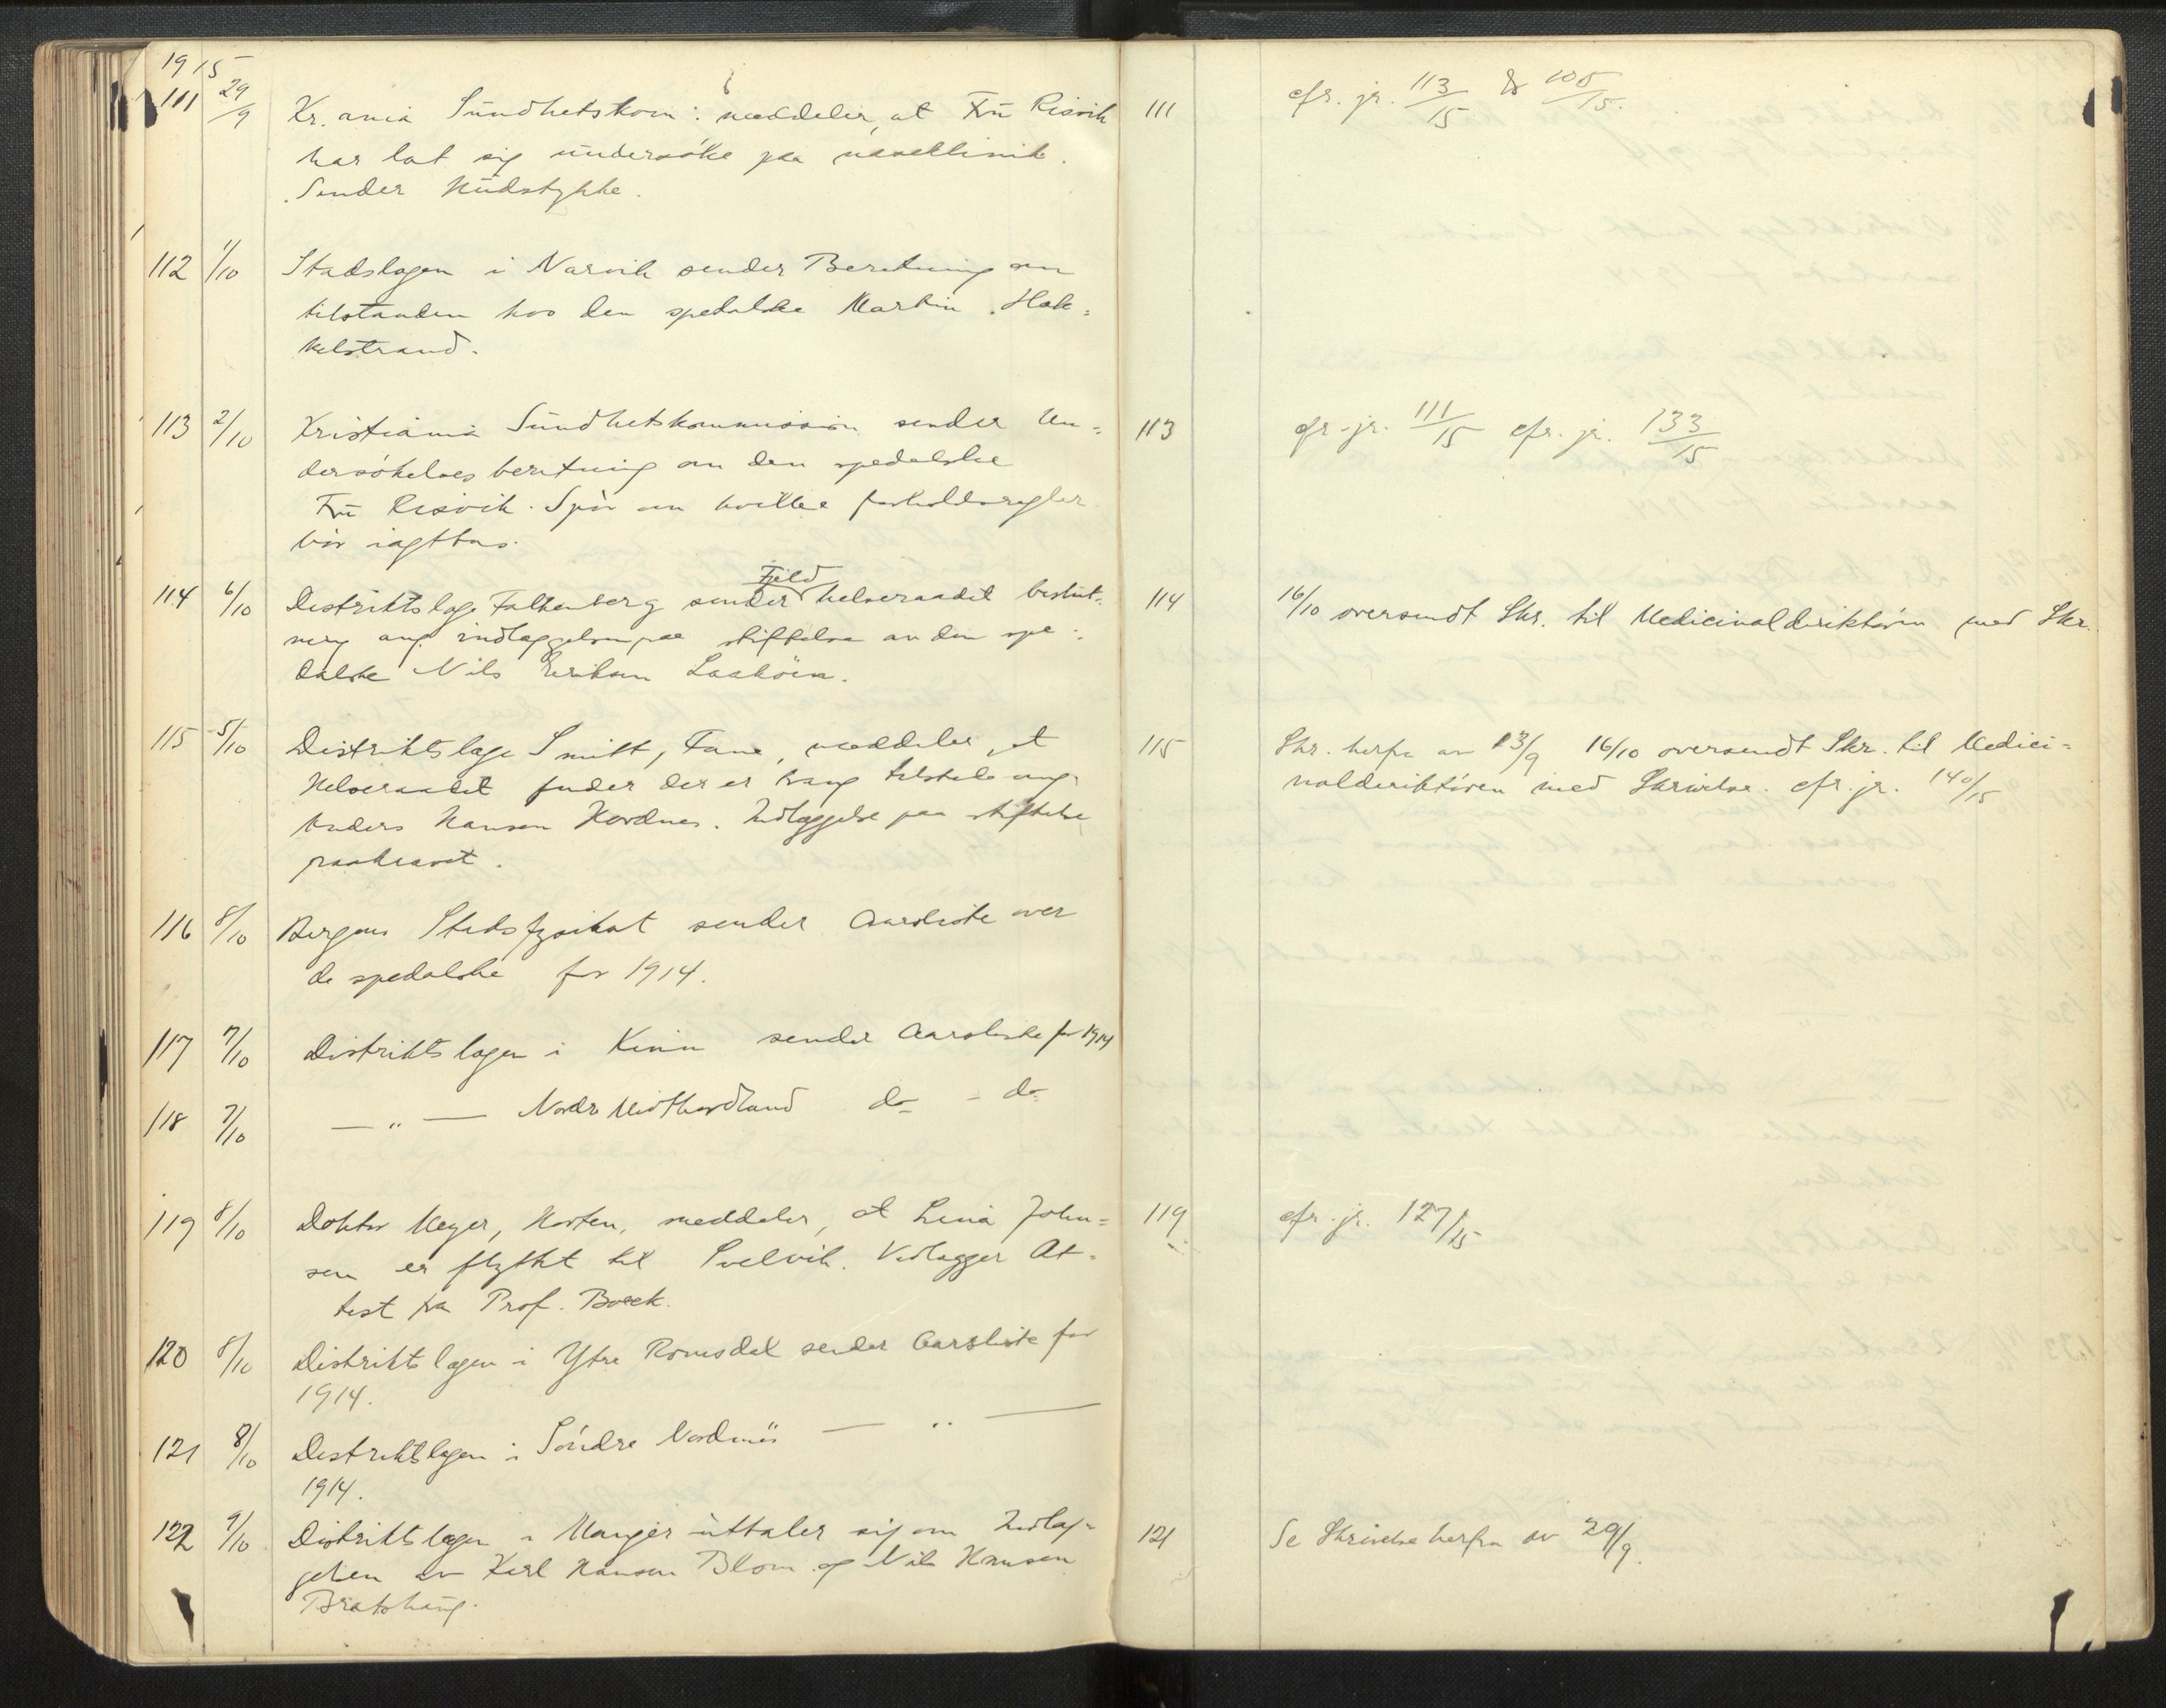 1915
111 29/9 Kr.ania Sundhetskom: meddeler, at Fru Risvik
har lat sig undersöke paa
Sender Hudstykke.
112 1/10 Stadslægen i Narvik sender Beretning om
tilstanden hos den spedalske Martin Hæk=
kelstrand.
113 2/10 Kristiania Sundhetskommission sender Un=
dersökelsesberetning om den spedalske
Fru Risvik. Spör om hvilke forholdsregler
bör iagttas.
114 6/10 Distriktslæge Falkenberg sender Fjeld helseraadet beslut=
ning ang. indlæggelsen paa stiftelse av den spe=
dalske Nils Eriksen
115 5/10 Distriktslæge Smitt, Fane, meddeler, at
Helseraadet finder der er trang tilstede ang.
Anders Hansen Hordnes. Indlæggelse paa stiftelse
paakrævet.
116 8/10 Bergens Stadsfysikat sender Aarsliste over
de spedalske for 1914.
117 7/10 Distriktslægen i Kinn sender Aarsliste for 1914
118 7/10 — " — Nordre Midthordland do - do
119 8/10 Doktor Meyer, Horten, meddeler, at Lina John=
sen er flyttet til Svelvik. Vedlægger At=
test fra Prof. Boeck.
120 8/10 Distriktslægen i Ytre Romsdal sender Aarsliste for
1914.
121 8/10 Distriktslægen i Söndre Nordmör — " —
1914.
122 9/10 Distriktslægen i Manger uttaler sig om Indlæg=
gelsen av Karl Hansen Blom og Nils Hansen
111 cfr. jr. 113/15 & 105/15.
113 cfr. jr. 111/15 cfr. jr. 133/15
114 16/10 oversendt Skr. til Medicinaldirektören med Skr.
115 Skr. herfra av 13/9 16/10 oversendt Skr. til Medici=
naldirektören med Skrivelse. cfr. jr. 140/15
119 cfr. jr. 127/15
121 Se Skrivelse herfra av 29/9.